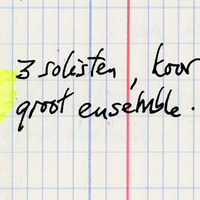 3 solisten, koor
groot ensemble.